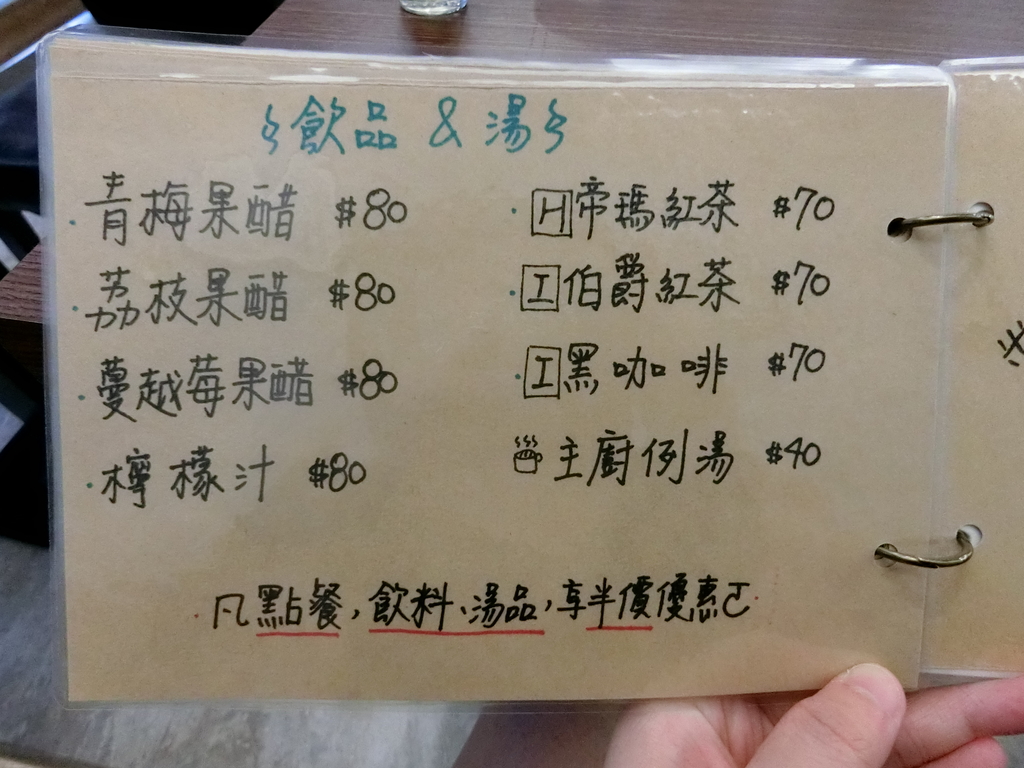 飲品 & 湯
青梅果醋 $80
荔枝果醋 $80
蔓越莓果醋 $80
檸檬汁 $80
H 帝瑪紅茶 $70
I 伯爵紅茶 $70
I 黑咖啡 $70
主廚例湯 $40
凡點餐,飲料、湯品,享半價優惠